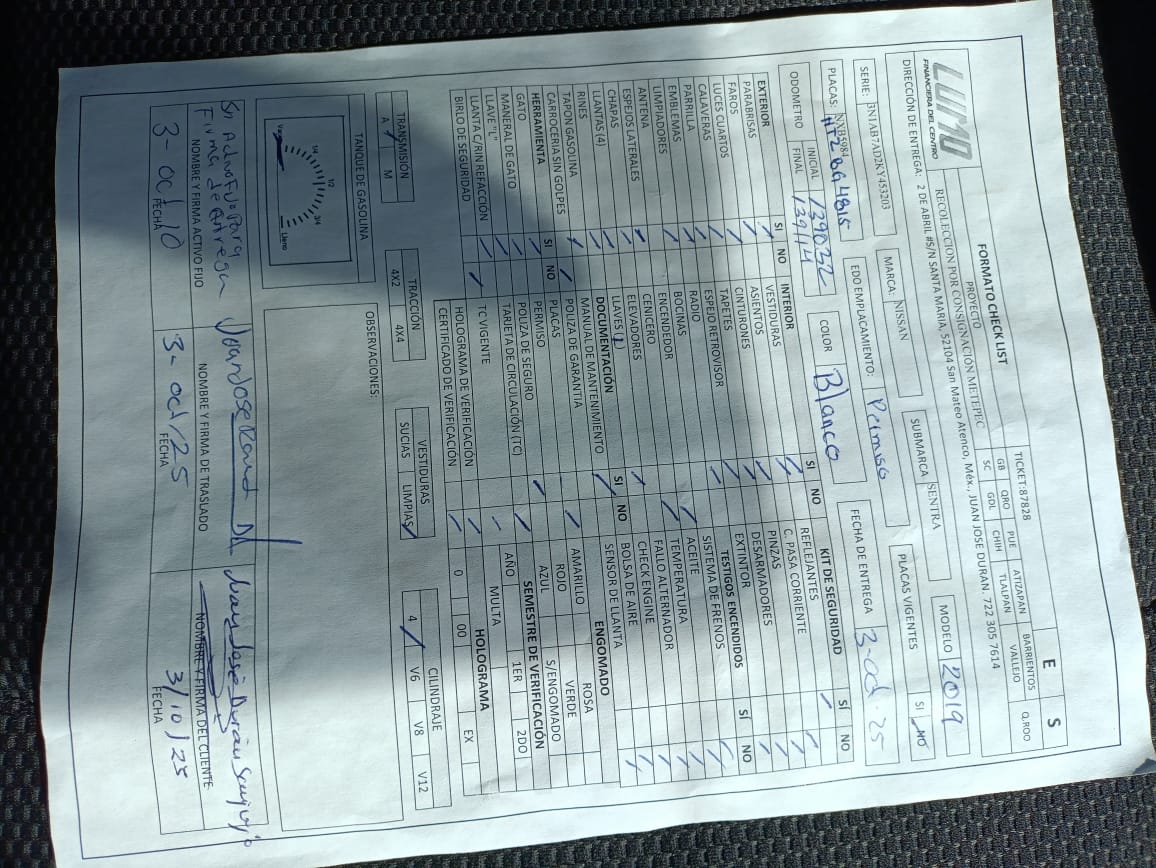 LUMO
FINANCIERA DEL CENTRO
FORMATO CHECK LIST
PROYECTO
RECOLECCION POR CONSIGNACIÓN METEPEC
TICKET:87828
E S
GB QRO PUE ATIZAPAN BARRIENTOS Q.ROO
SC GDL CHIH TLALPAN VALLEJO
DIRECCIÓN DE ENTREGA: 2 DE ABRIL #S/N SANTA MARIA, 52104 San Mateo Atenco, Méx., JUAN JOSE DURAN. 722 305 7614
SERIE: 3N1AB7AD2KY453203
MARCA: NISSAN
SUBMARCA SENTRA
MODELO 2019
PLACAS:
EDO EMPLACAMIENTO: Permiso
PLACAS VIGENTES SI NO
ODOMETRO INICIAL 139032
FINAL 139114
COLOR Blanco
FECHA DE ENTREGA 3-oct-25
EXTERIOR SI NO
PARABRISAS
FAROS
LUCES CUARTOS
CALAVERAS
PARRILLA
EMBLEMAS
LIMPIADORES
ANTENA
ESPEJOS LATERALES
CHAPAS
LLANTAS (4)
RINES
TAPON GASOLINA
CARROCERIA SIN GOLPES
HERRAMIENTA SI NO
GATO
MANERAL DE GATO
LLAVE "L"
LLANTA C/RIN REFACCIÓN
BIRLO DE SEGURIDAD
INTERIOR SI NO
VESTIDURAS
ASIENTOS
CINTURONES
TAPETES
ESPEJO RETROVISOR
RADIO
BOCINAS
ENCENDEDOR
CENICERO
ELEVADORES
LLAVES (1)
DOCUMENTACIÓN SI NO
MANUAL DE MANTENIMIENTO
POLIZA DE GARANTIA
PLACAS
PERMISO
POLIZA DE SEGURO
TARJETA DE CIRCULACIÓN (TC)
TC VIGENTE
HOLOGRAMA DE VERIFICACIÓN
CERTIFICADO DE VERIFICACIÓN
KIT DE SEGURIDAD SÍ NO
REFLEJANTES
C. PASA CORRIENTE
PINZAS
DESARMADORES
EXTINTOR
TESTIGOS ENCENDIDOS SÍ NO
SISTEMA DE FRENOS
ACEITE
TEMPERATURA
FALLO ALTERNADOR
CHECK ENGINE
BOLSA DE AIRE
SENSOR DE LLANTA
ENGOMADO
ROSA
AMARILLO VERDE
ROJO S/ENGOMADO
AZUL
SEMESTRE DE VERIFICACIÓN
AÑO 1ER 2DO
MULTA
HOLOGRAMA
0 00 EX
TRANSMISION
A M
TRACCIÓN
4X2 4X4
VESTIDURAS
SUCIAS LIMPIAS
CILINDRAJE
4 V6 V8 V12
TANQUE DE GASOLINA
Vacio 1/4 1/2 3/4 Lleno
OBSERVACIONES:
Firma de entrega
NOMBRE Y FIRMA ACTIVO FIJO
NOMBRE Y FIRMA DE TRASLADO
NOMBRE Y FIRMA DEL CLIENTE
3-oct/25
3/10/25
FECHA
FECHA
FECHA